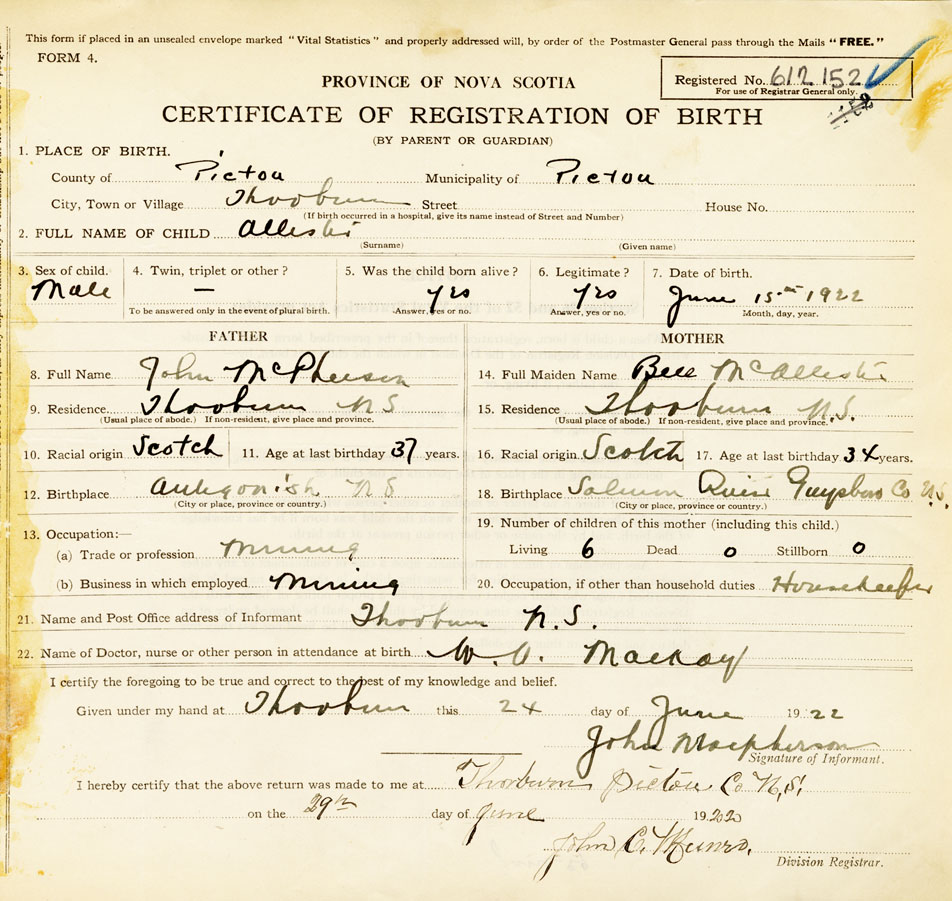 This form if placed in an unsealed envelope marked "Vital Statistics" and properly addressed will, by order of the Postmaster General pass through the Mails "FREE."
FORM 4.
PROVINCE OF NOVA SCOTIA
Registered No. 612152
For use of Registrar General only.
CERTIFICATE OF REGISTRATION OF BIRTH
(BY PARENT OR GUARDIAN)
1. PLACE OF BIRTH.
County of Pictou Municipality of Pictou
City, Town or Village Thorburn Street House No.
(If birth occurred in a hospital, give its name instead of Street and Number)
2. FULL NAME OF CHILD Allister
(Surname) (Given name)
3. Sex of child. 4. Twin, triplet or other? 5. Was the child born alive? 6. Legitimate? 7. Date of birth.
Male — yes yes June 15th 1922
To be answered only in the event of plural birth. Answer, yes or no. Answer, yes or no. Month, day, year.
FATHER MOTHER
8. Full Name John McPherson 14. Full Maiden Name Bell McAllister
9. Residence Thorburn NS 15. Residence Thorburn N.S.
(Usual place of abode.) If non-resident, give place and province. (Usual place of abode.) If non-resident, give place and province.
10. Racial origin Scotch 11. Age at last birthday 37 years. 16. Racial origin Scotch 17. Age at last birthday 34 years.
12. Birthplace Antigonish NS 18. Birthplace Salmon River Guysboro Co N.S.
(City or place, province or country.) (City or place, province or country.)
13. Occupation:— 19. Number of children of this mother (including this child.)
(a) Trade or profession Mining Living 6 Dead 0 Stillborn 0
(b) Business in which employed Mining 20. Occupation, if other than household duties Housekeeper
21. Name and Post Office address of Informant Thorburn N.S.
22. Name of Doctor, nurse or other person in attendance at birth W. A. Mackay
I certify the foregoing to be true and correct to the best of my knowledge and belief.
Given under my hand at Thorburn this 24 day of June 1922
John Macpherson
Signature of Informant.
I hereby certify that the above return was made to me at Thorburn Pictou Co N.S.
on the 29th day of June 1922
John C. Munro.
Division Registrar.